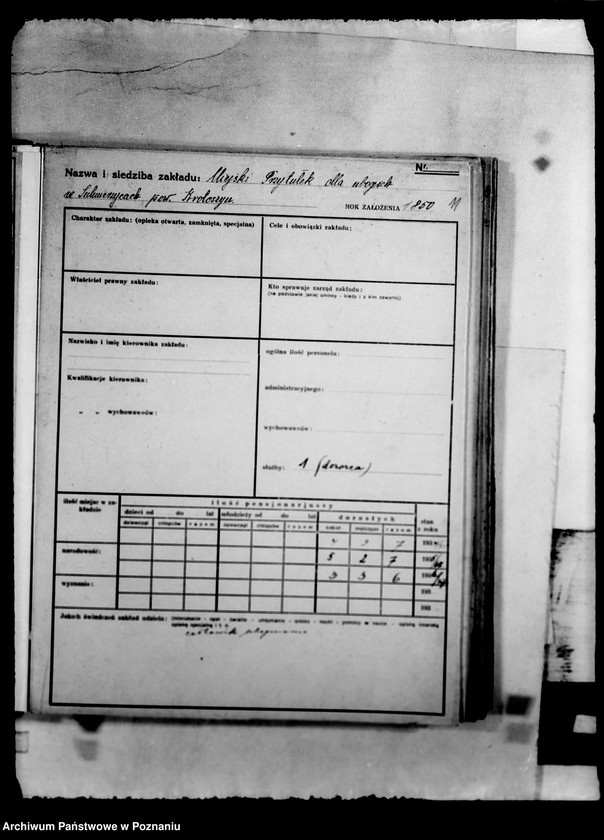 Nr.
Nazwa i siedziba zakładu: Miejski Przytułek dla ubogich
w Sulmierzycach pow. Krotoszyn
ROK ZAŁOŻENIA 1850
Charakter zakładu: (opieka otwarta, zamknięta, specjalna)
Cele i obowiązki zakładu:
Właściciel prawny zakładu:
Kto sprawuje zarząd zakładu:
(na podstawie jakiej umowy - kiedy i z kim zawartej)
Nazwisko i imię kierownika zakładu:
ogólna ilość personelu:
Kwalifikacje kierownika:
administracyjnego:
„ „ wychowawców:
wychowawców:
służby: 1 (dozorca)
ilość miejsc w zakładzie
ilość pensjonarjuszy
dzieci od do lat młodzieży od do lat dorosłych
stan z roku
dziewcząt chłopców razem dziewcząt chłopców razem kobiet mężczyzn razem
2 7 193
narodowość:
5 2 7 193
3 3 6 193
wyznanie:
193
193
Jakich świadczeń zakład udziela: (mieszkanie - opał - światło - utrzymanie - odzież - nauki - pomocy w nauce - opiekę lekarską
opiekę specjalną i t. d.
całkowite utrzymanie
Archiwum Państwowe w Poznaniu